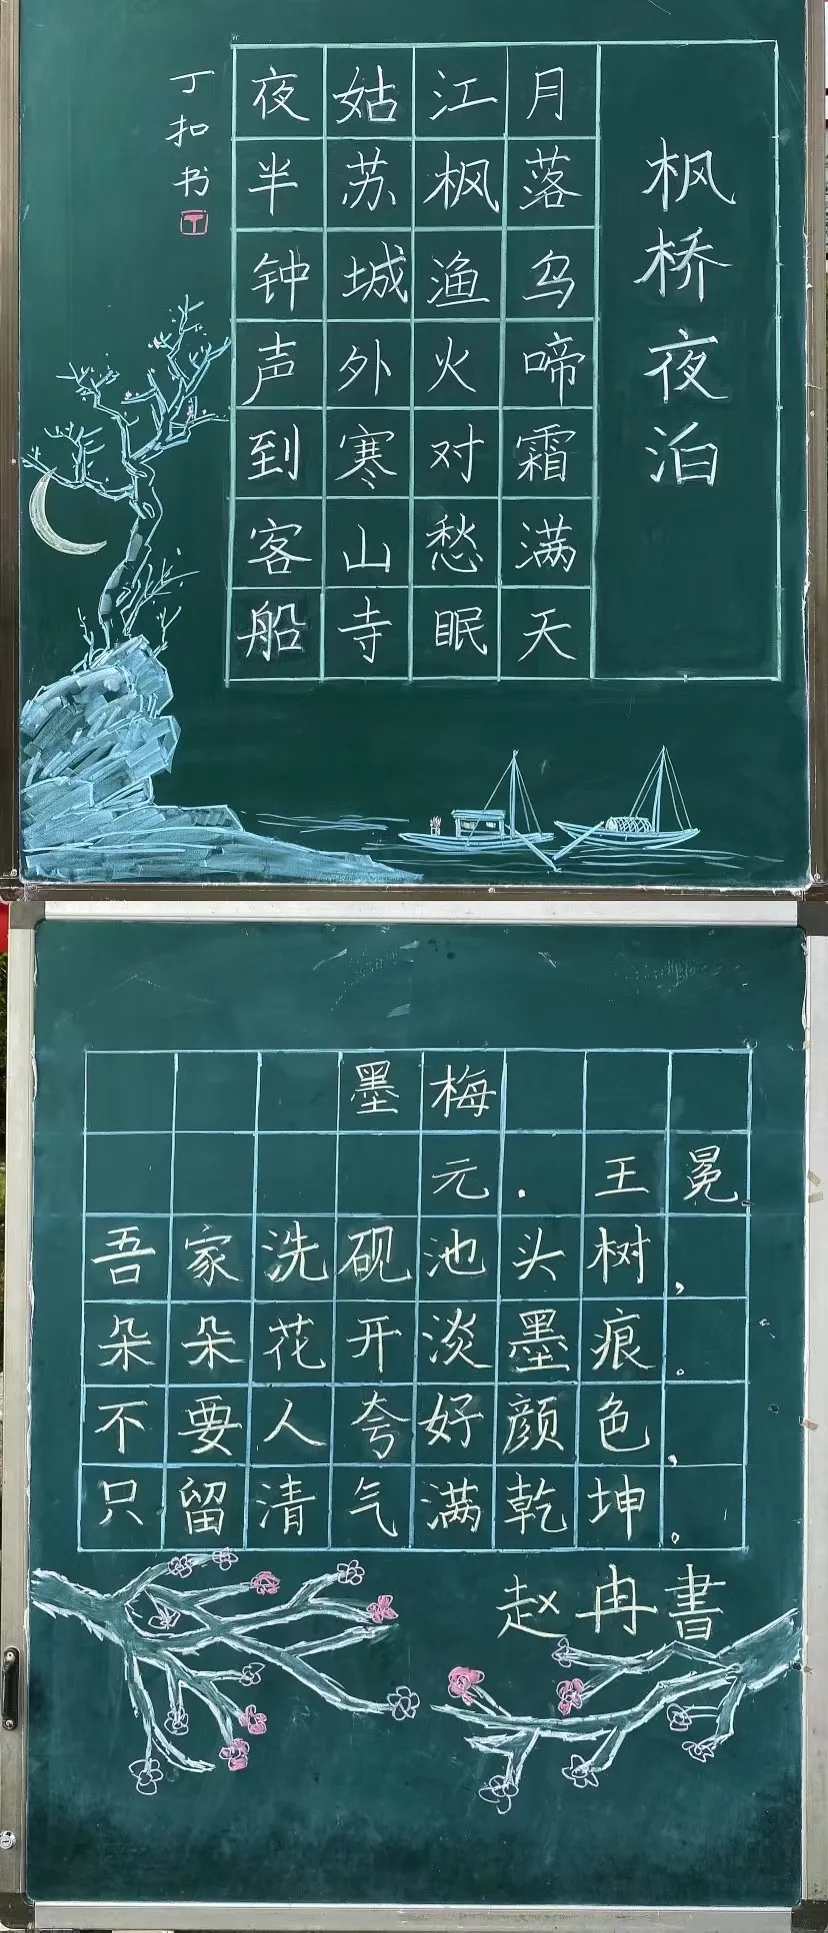 枫桥夜泊
月落乌啼霜满天
江枫渔火对愁眠
姑苏城外寒山寺
夜半钟声到客船
丁扣书
丁
墨梅
元.王冕
吾家洗砚池头树,
朵朵花开淡墨痕。
不要人夸好颜色,
只留清气满乾坤。
赵冉書